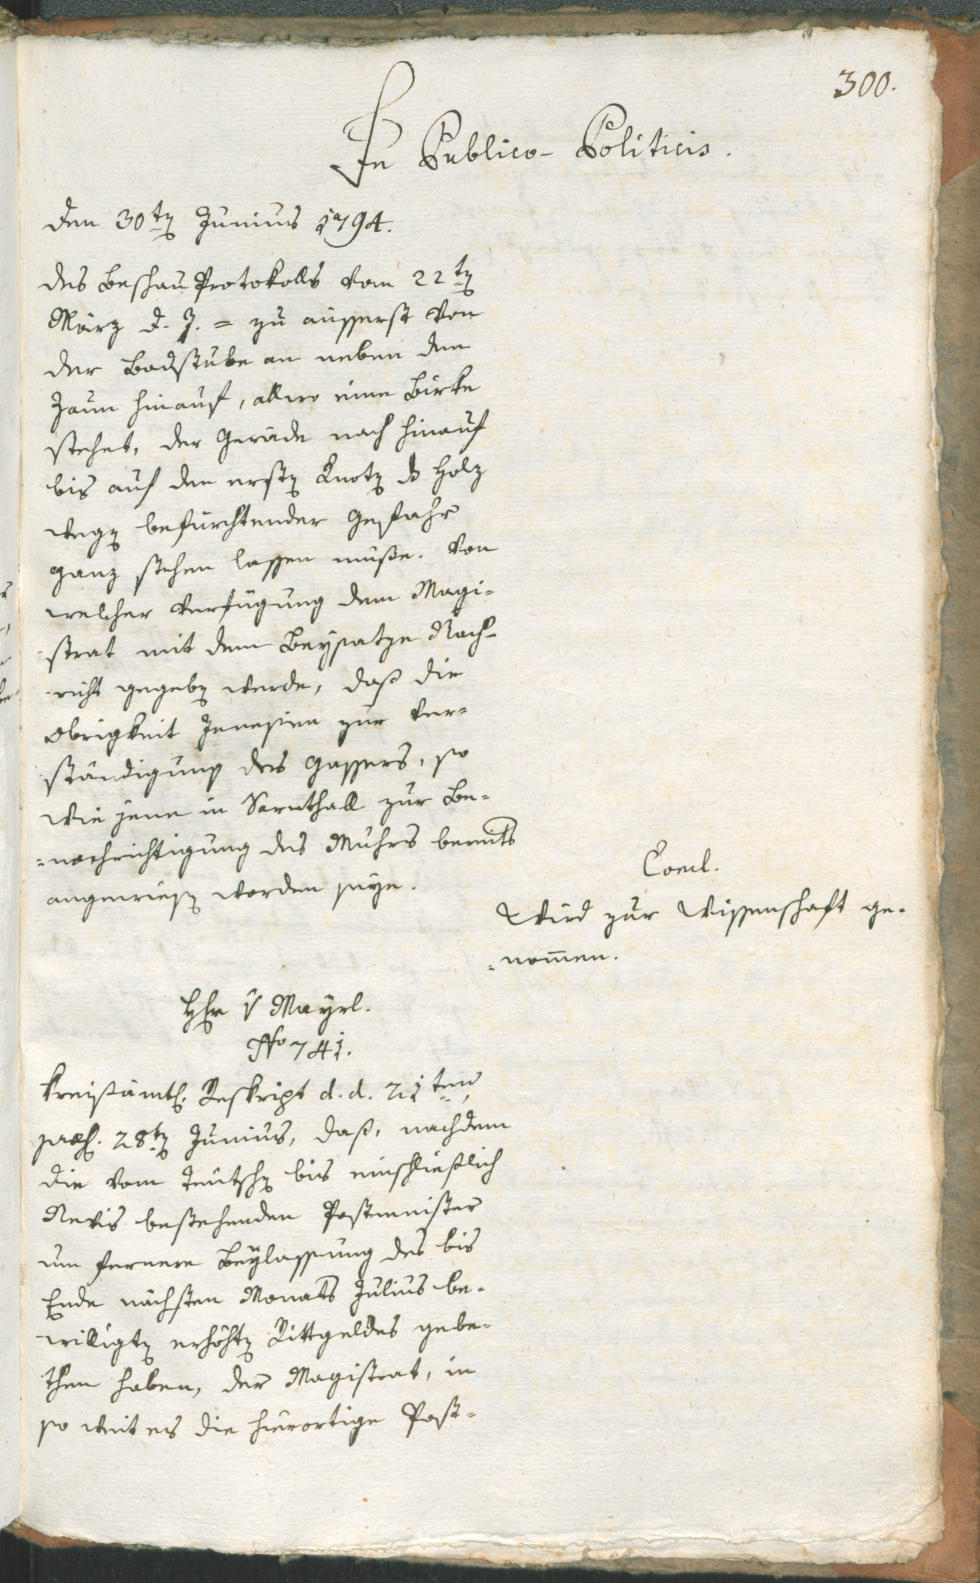 300.
In Publico-Politicis.
Den 30ten Junius 1794.
des Beschau Protokolls vom 22ten
März d. J. = zu äusserst von
der Badstube an neben dem
Zaun hinauf, allwo eine Birke
stehet, der Gerade nach hinauf
bis auf den ersten Knoten das Holz
wegen befürchtender Gefahr
ganz stehen lassen müße. Von
welcher Verfügung dem Magi-
strat mit dem Beysatze Nach-
richt gegeben werde, daß die
Obrigkeit Jenesien zur Ver-
ständigung des Gassers, so
wie jene in Sarnthall zur Be-
=nachrichtigung des Muhrs bereits
angewiesen worden seye.
Concl.
Wird zur Wissenschaft ge-
=nommen.
Hr v Mayrl.
No 741.
Kreisämtl. Reskript d. d. 21ten,
præs. 28ten Junius, daß, nachdem
die vom Teutschen bis einschließlich
Nevis bestehenden Postmeister
um fernere Beylassung des bis
Ende nächsten Monats Julius be-
willigten erhöhten Rittgeldes gebe-
then haben, der Magistrat, in
so weit es die hierortige Post-